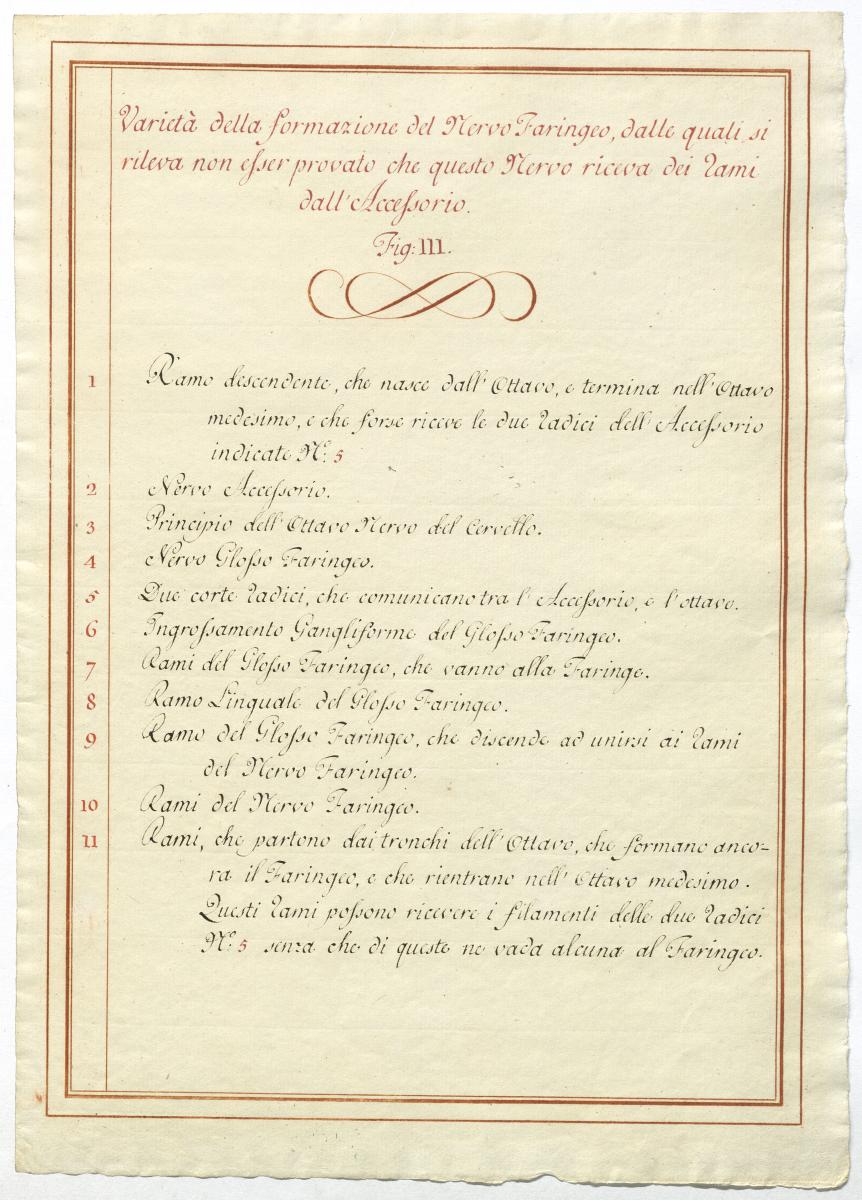 Varietà della formazione del Nervo Faringeo, dalle quali si
rileva non esser provato che questo Nervo riceva dei rami
dall'Accessorio.
Fig: III.
1 Ramo descendente, che nasce dall'Ottavo, e termina nell'Ottavo
medesimo, e che forse riceve le due radici dell'Accessorio
indicate N.º 5
2 Nervo Accessorio.
3 Principio dell'Ottavo Nervo del Cervello.
4 Nervo Glosso Faringeo.
5 Due corte radici, che comunicano tra l'Accessorio, e l'ottavo.
6 Ingrossamento Gangliforme del Glosso Faringeo.
7 Rami del Glosso Faringeo, che vanno alla Faringe.
8 Ramo Linguale del Glosso Faringeo.
9 Ramo del Glosso Faringeo, che discende ad unirsi ai rami
del Nervo Faringeo.
10 Rami del Nervo Faringeo.
11 Rami, che partono dai tronchi dell'Ottavo, che formano anco-
ra il Faringeo, e che rientrano nell'Ottavo medesimo.
Questi rami possono ricevere i filamenti delle due radici
N.º 5 senza che di queste ne vada alcuna al Faringeo.